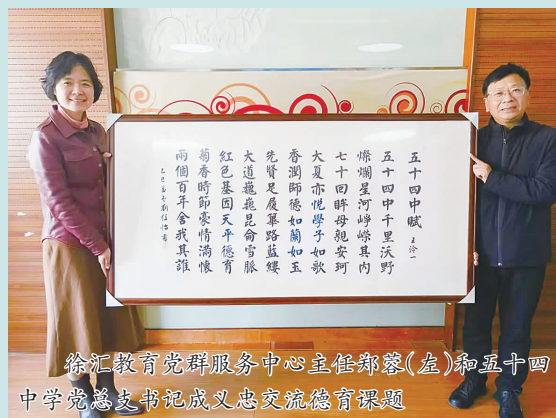 五十四中賦 王泠一
五十四中千里沃野
燦爛星河崢嶸其内
七十回眸母親安珂
大夏亦悦學子如歌
香潤師德如蘭如玉
先賢足履篳路藍縷
大道巍巍昆侖雪脈
紅色基因天平德育
菊香時節豪情滿懷
兩個百年舍我其誰
徐汇教育党群服务中心主任郑蓉(左)和五十四
中学党总支书记成义忠交流德育课题